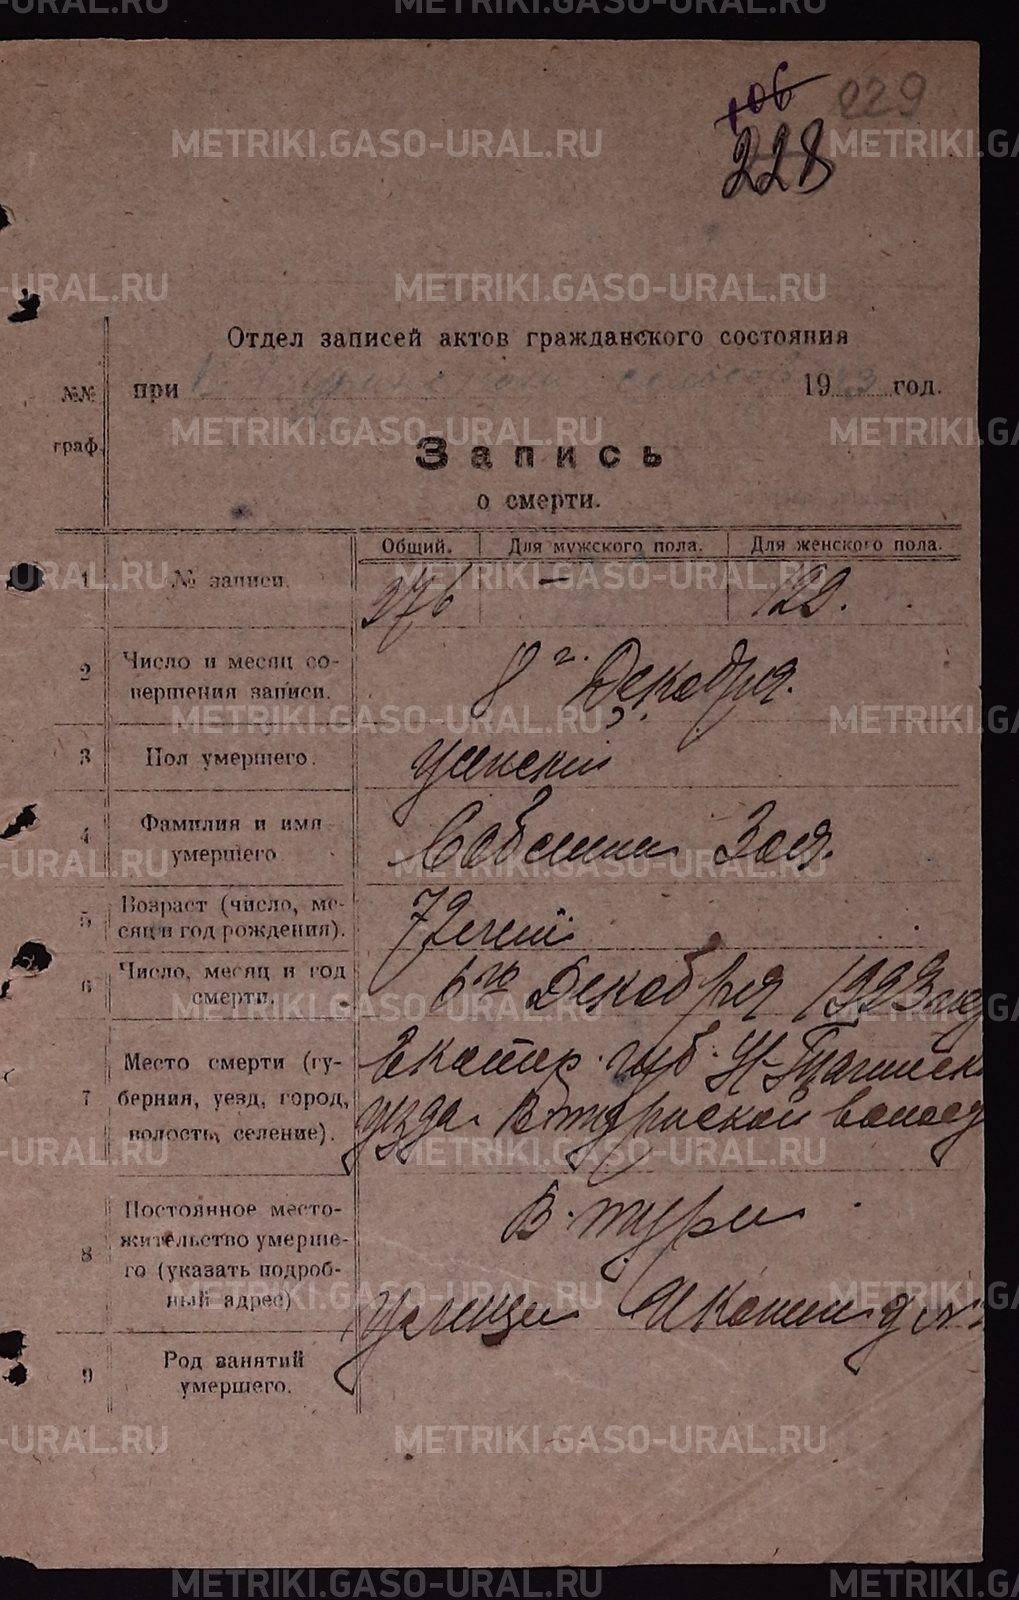 106 029
228
Отдел записей актов гражданского состояния
№№ граф.
при 1923 год.
Запись
о смерти.
Общий. Для мужского пола. Для женского пола.
1 № записи. 276 — 122.
2 Число и месяц со-
вершения записи. 8 г. Декабря.
3 Пол умершего. женский
4 Фамилия и имя
умершего Зоя.
5 Возраст (число, ме-
сяц и год рождения). 7 лет
6 Число, месяц и год
смерти. 6го Декабря 1923 год
7 Место смерти (гу-
берния, уезд, город,
волость, селение). Екатер. губ. Н-Тагильск
уезда В-Турнской волос
8 Постоянное место-
жительство умерше-
го (указать подроб-
ный адрес) В. Тура
улица
9 Род занятий
умершего.
METRIKI.GASO-URAL.RU